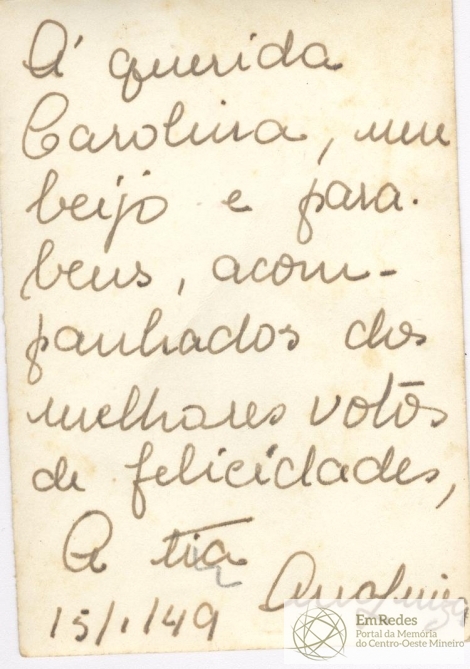 À querida
Carolina, um
beijo e para.
bens, acom-
panhados dos
melhores votos
de felicidades,
A tia
15/1/49
EmRedes
Portal da Memória
do Centro-Oeste Mineiro